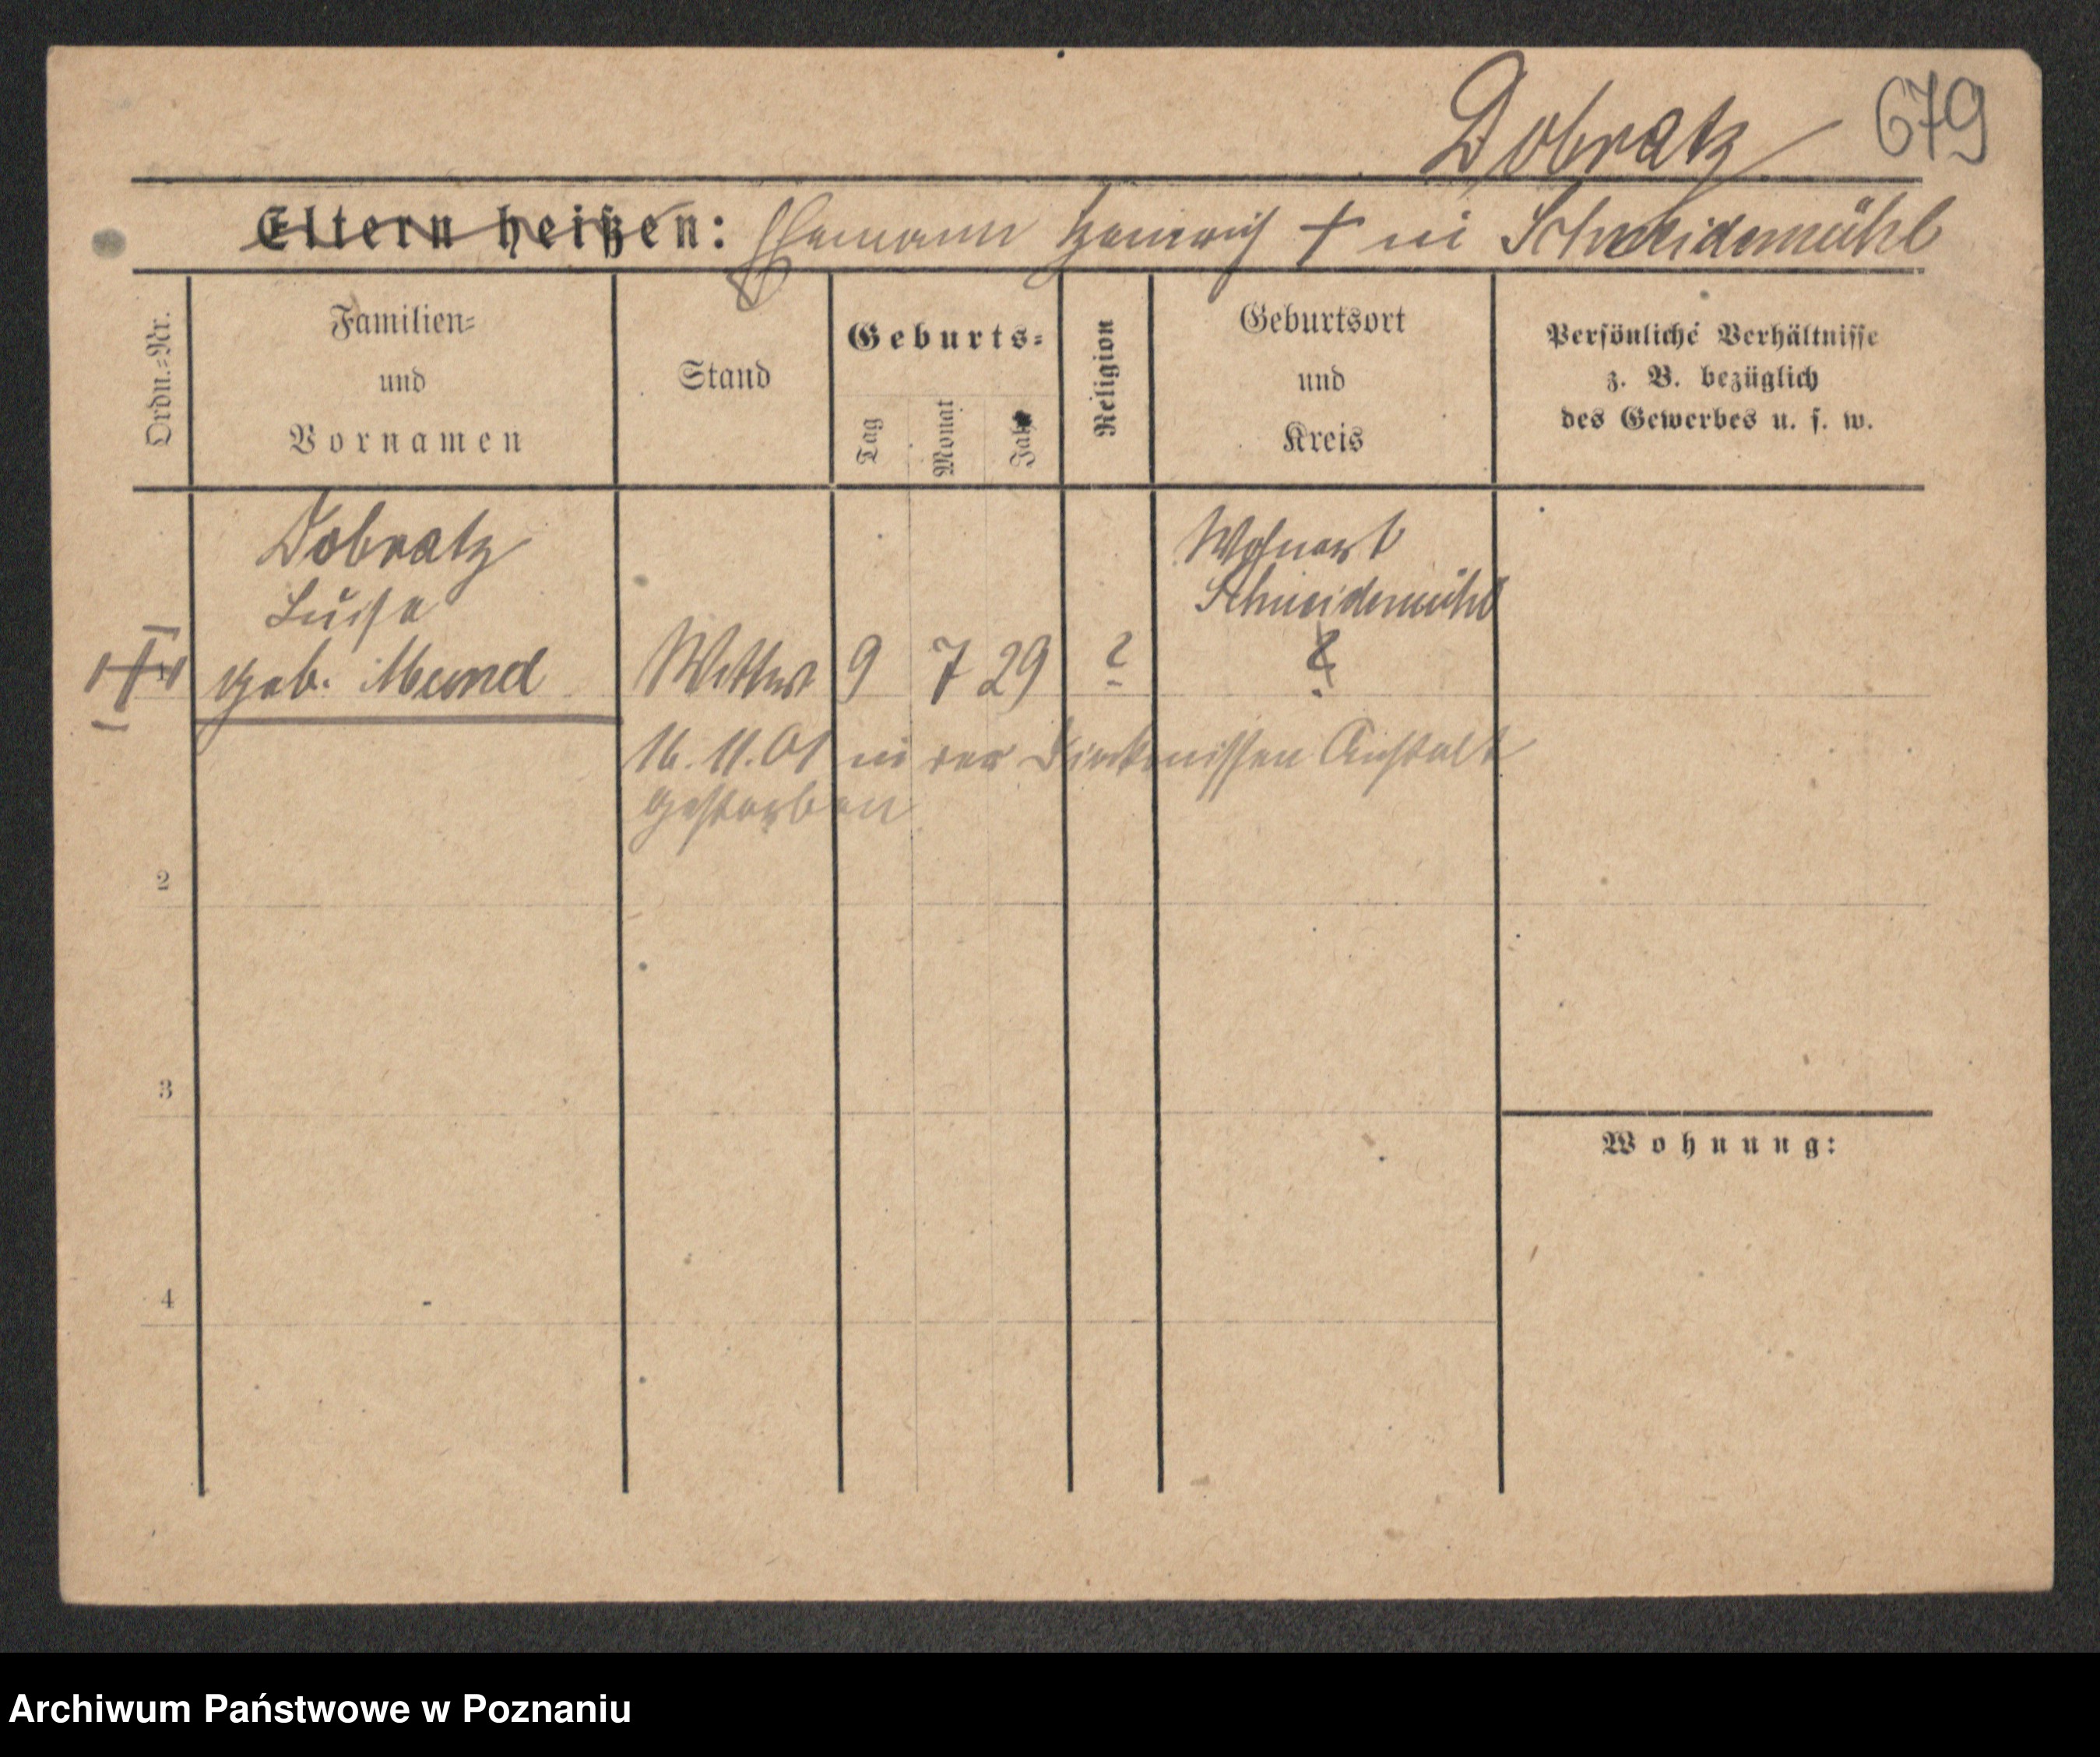 Dobratz 679
Eltern heißen: Ehemann Heinrich † in Schneidemühl
Ordn.-Nr.
Familien-
und
Vornamen
Stand
Geburts-
Tag
Monat
Jahr
Religion
Geburtsort
und
Kreis
Persönliche Verhältnisse
z. B. bezüglich
des Gewerbes u. s. w.
Dobratz
Luise
geb. Mund
Wittwe 9 7 29 ?
Wohnort
Schneidemühl
?
16.11.01 in der Diakonissen Anstalt
gestorben
2
3
4
Wohnung:
Archiwum Państwowe w Poznaniu